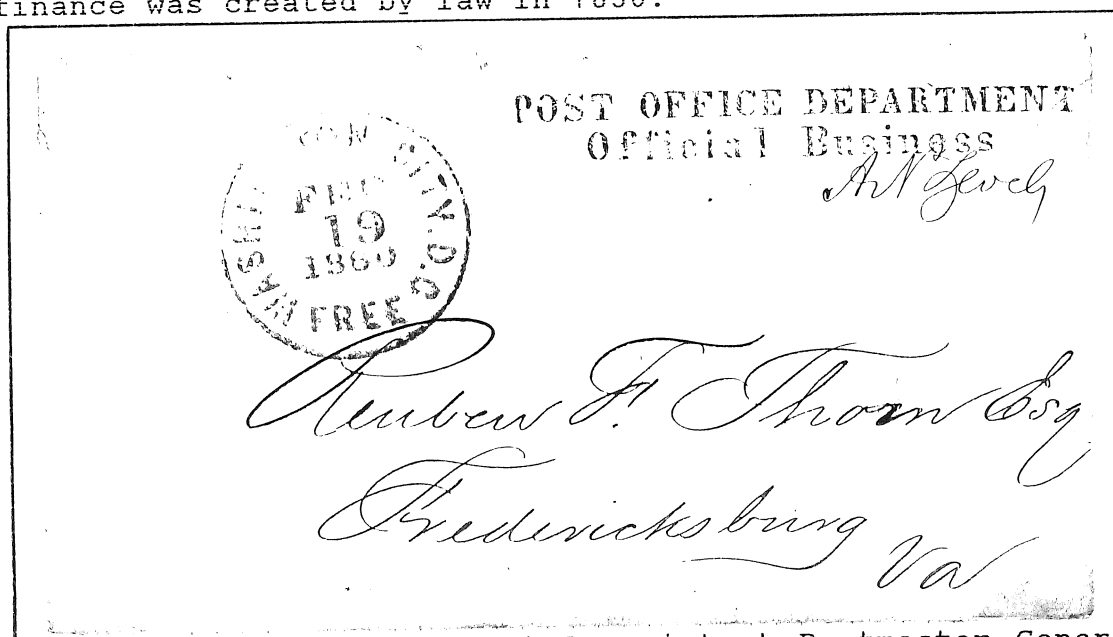 finance was created by law in 1836.
POST OFFICE DEPARTMENT
Official Business
WASHINGTON CITY. D.C.
FEB
19
1860
FREE
Reuben F. Thorn Esq
Fredericksburg
Va